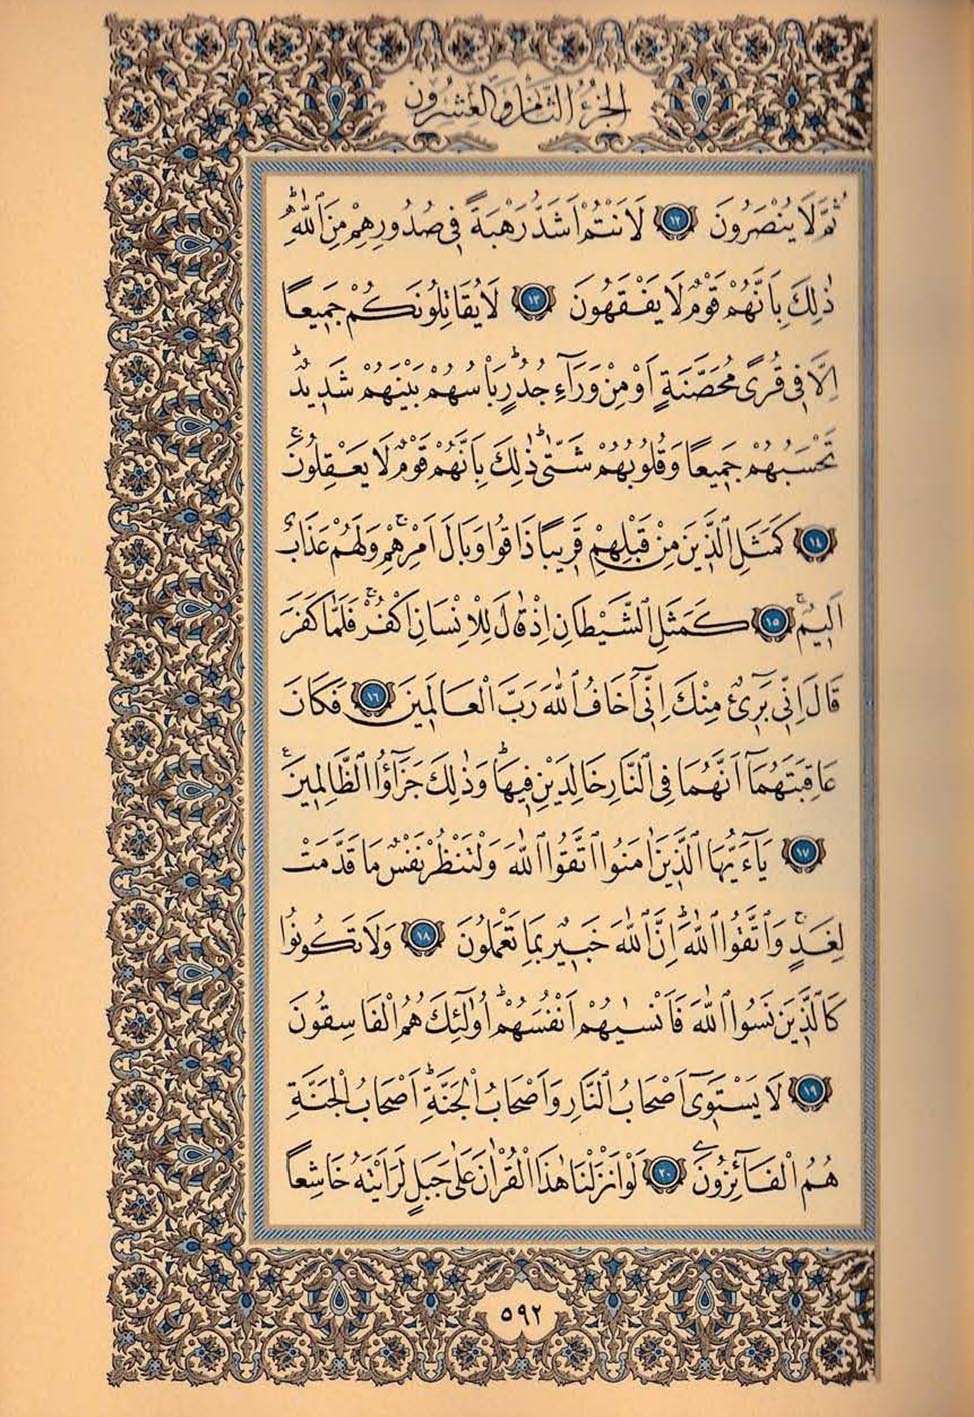 الجزء الثامن والعشرون
ثُمَّ لَا يُنْصَرُونَ ١٢ لَاَنْتُمْ اَشَدُّ رَهْبَةً ف۪ي صُدُورِهِمْ مِنَ اللّٰهِۜ
ذٰلِكَ بِاَنَّهُمْ قَوْمٌ لَا يَفْقَهُونَ ١٣ لَا يُقَاتِلُونَكُمْ جَم۪يعًا
اِلَّا ف۪ي قُرًى مُحَصَّنَةٍ اَوْ مِنْ وَرَٓاءِ جُدُرٍۜ بَأْسُهُمْ بَيْنَهُمْ شَد۪يدٌۜ
تَحْسَبُهُمْ جَم۪يعًا وَقُلُوبُهُمْ شَتّٰىۜ ذٰلِكَ بِاَنَّهُمْ قَوْمٌ لَا يَعْقِلُونَۚ
١٤ كَمَثَلِ الَّذ۪ينَ مِنْ قَبْلِهِمْ قَر۪يبًا ذَاقُوا وَبَالَ اَمْرِهِمْۚ وَلَهُمْ عَذَابٌ
اَل۪يمٌۚ ١٥ كَمَثَلِ الشَّيْطَانِ اِذْ قَالَ لِلْاِنْسَانِ اكْفُرْۚ فَلَمَّا كَفَرَ
قَالَ اِنّ۪ي بَر۪ٓيءٌ مِنْكَ اِنّ۪ٓي اَخَافُ اللّٰهَ رَبَّ الْعَالَم۪ينَ ١٦ فَكَانَ
عَاقِبَتَهُمَٓا اَنَّهُمَا فِي النَّارِ خَالِدَيْنِ ف۪يهَاۜ وَذٰلِكَ جَزٰٓؤُا الظَّالِم۪ينَ۟
١٧ يَٓا اَيُّهَا الَّذ۪ينَ اٰمَنُوا اتَّقُوا اللّٰهَ وَلْتَنْظُرْ نَفْسٌ مَا قَدَّمَتْ
لِغَدٍۚ وَاتَّقُوا اللّٰهَۜ اِنَّ اللّٰهَ خَب۪يرٌ بِمَا تَعْمَلُونَ ١٨ وَلَا تَكُونُوا
كَالَّذ۪ينَ نَسُوا اللّٰهَ فَاَنْسٰيهُمْ اَنْفُسَهُمْۜ اُو۬لٰٓئِكَ هُمُ الْفَاسِقُونَ
١٩ لَا يَسْتَو۪ٓي اَصْحَابُ النَّارِ وَاَصْحَابُ الْجَنَّةِۜ اَصْحَابُ الْجَنَّةِ
هُمُ الْفَٓائِزُونَ ٢٠ لَوْ اَنْزَلْنَا هٰذَا الْقُرْاٰنَ عَلٰى جَبَلٍ لَرَاَيْتَهُ خَاشِعًا
٥٩٢